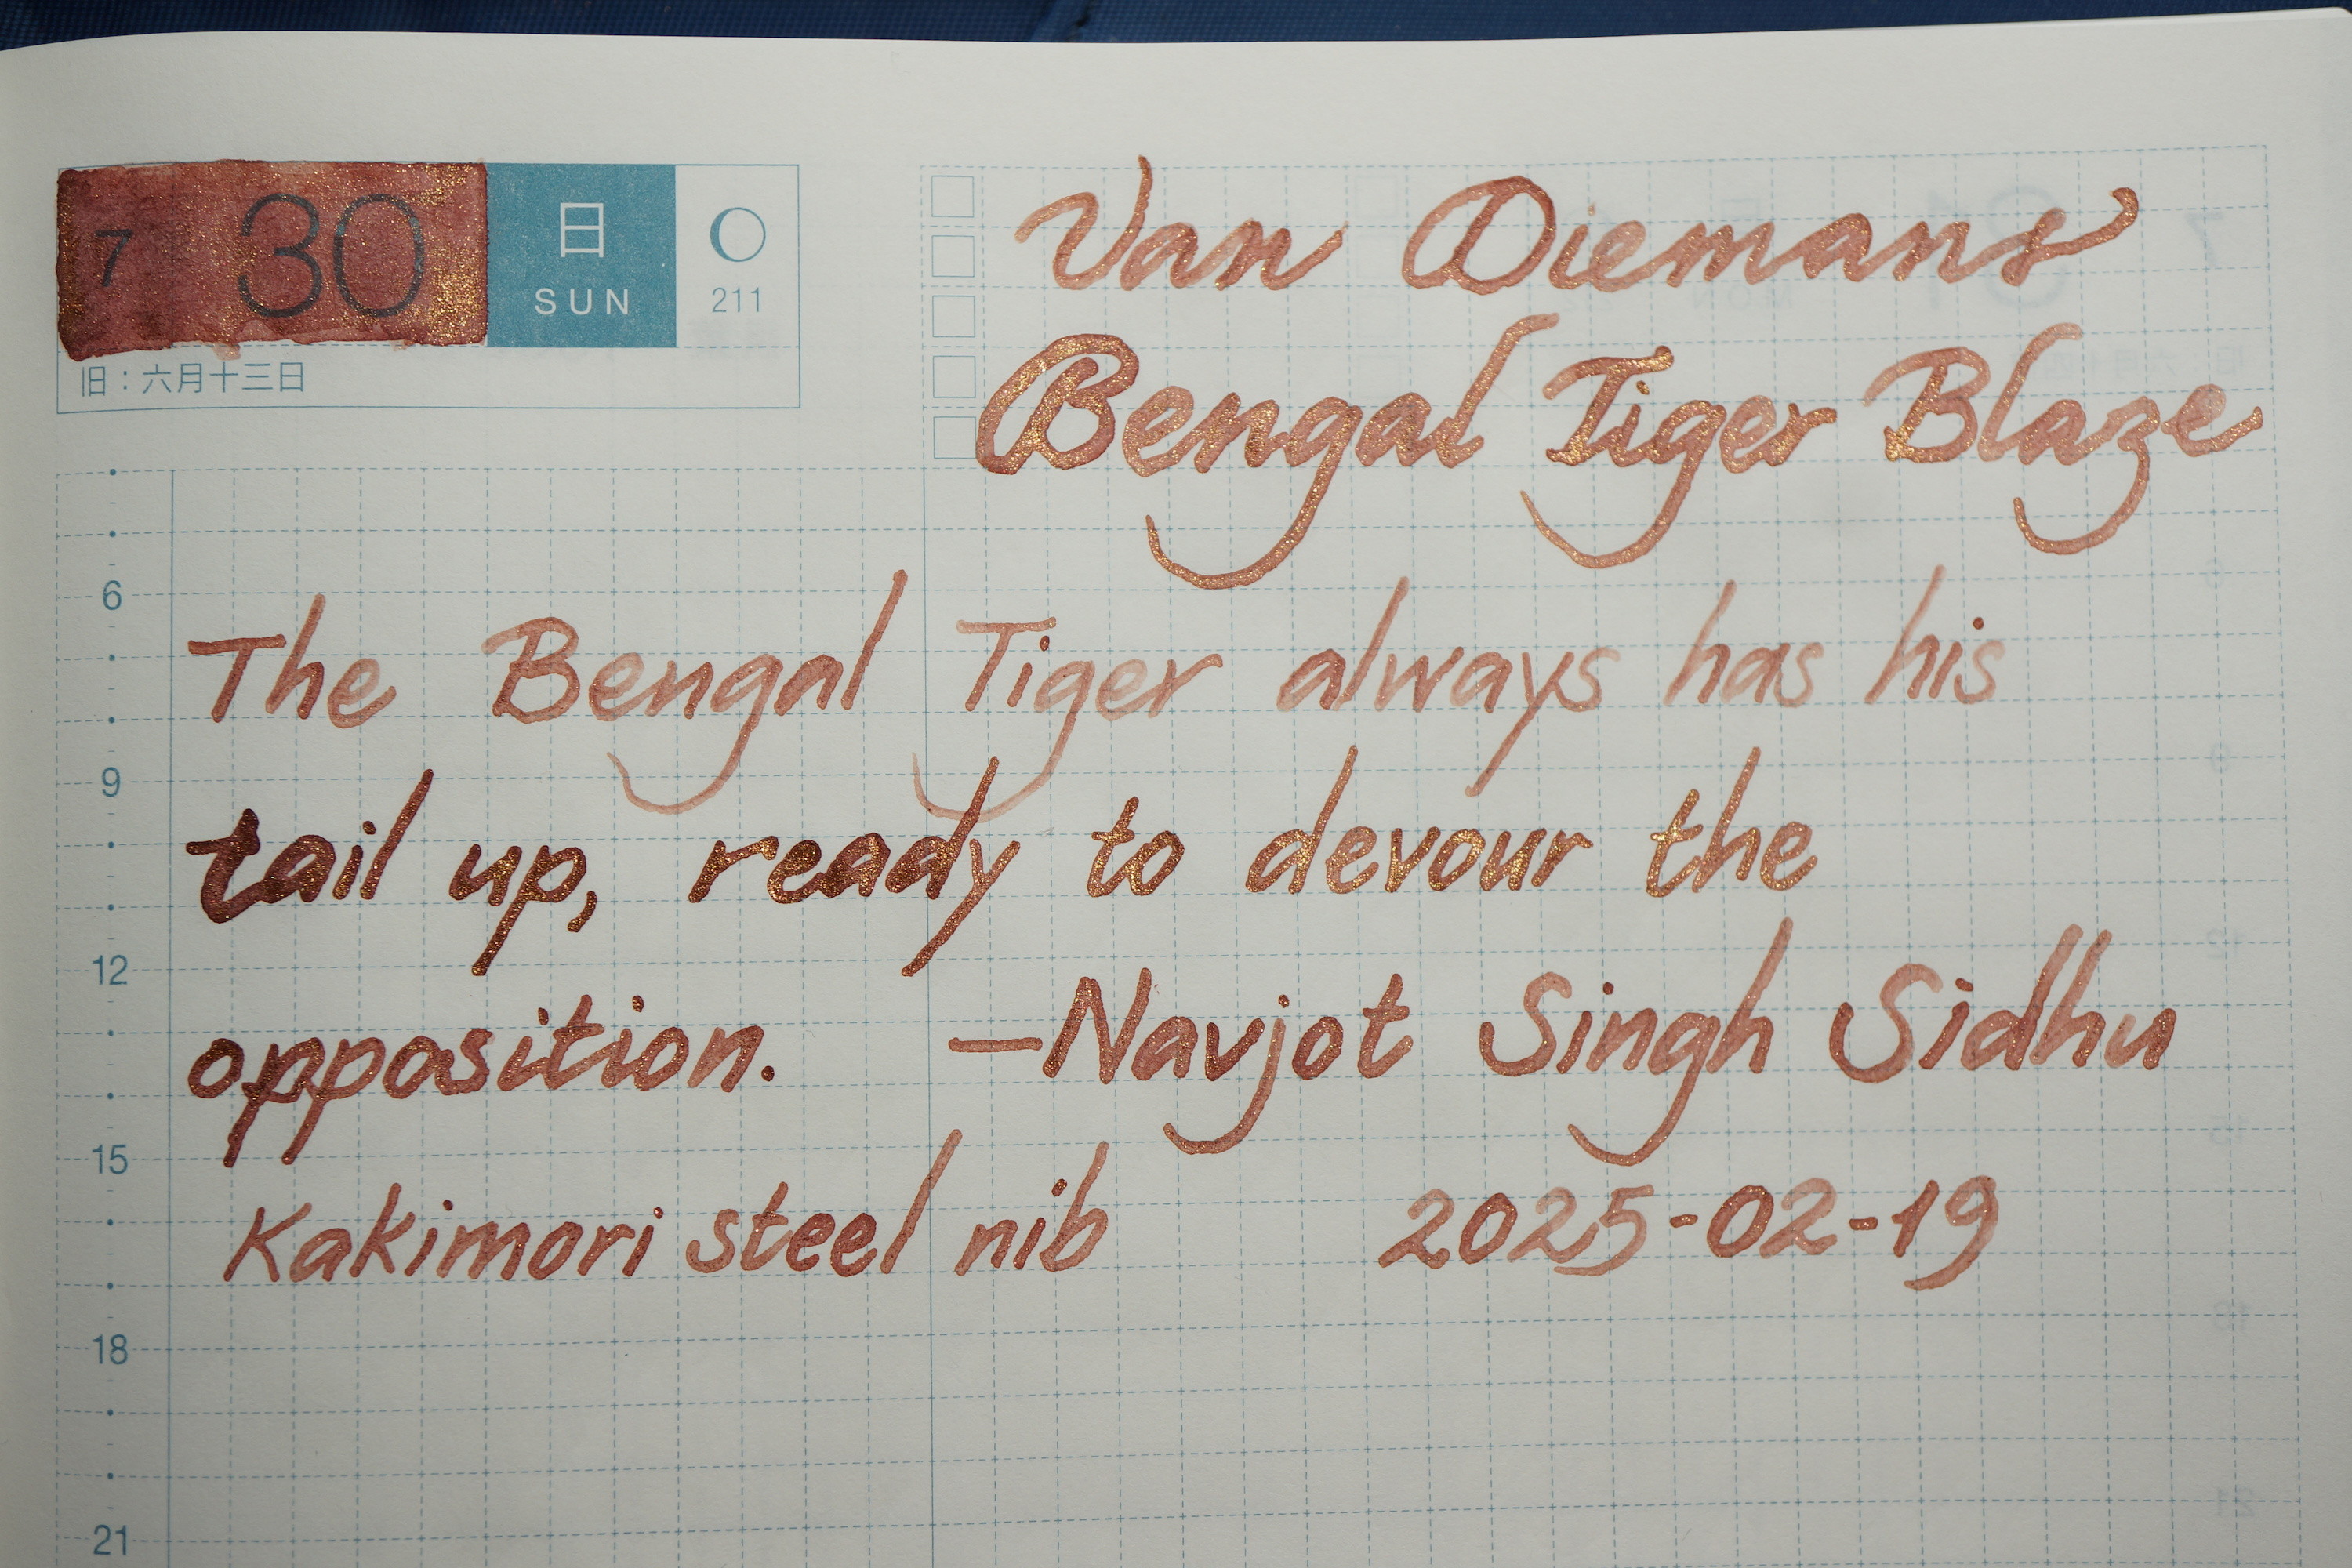 7 30 日 SUN 211
旧:六月十三日
Van Diemans
Bengal Tiger Blaze
6
The Bengal Tiger always has his
9
tail up, ready to devour the
12
opposition. —Navjot Singh Sidhu
15
Kakimori steel nib 2025-02-19
18
21